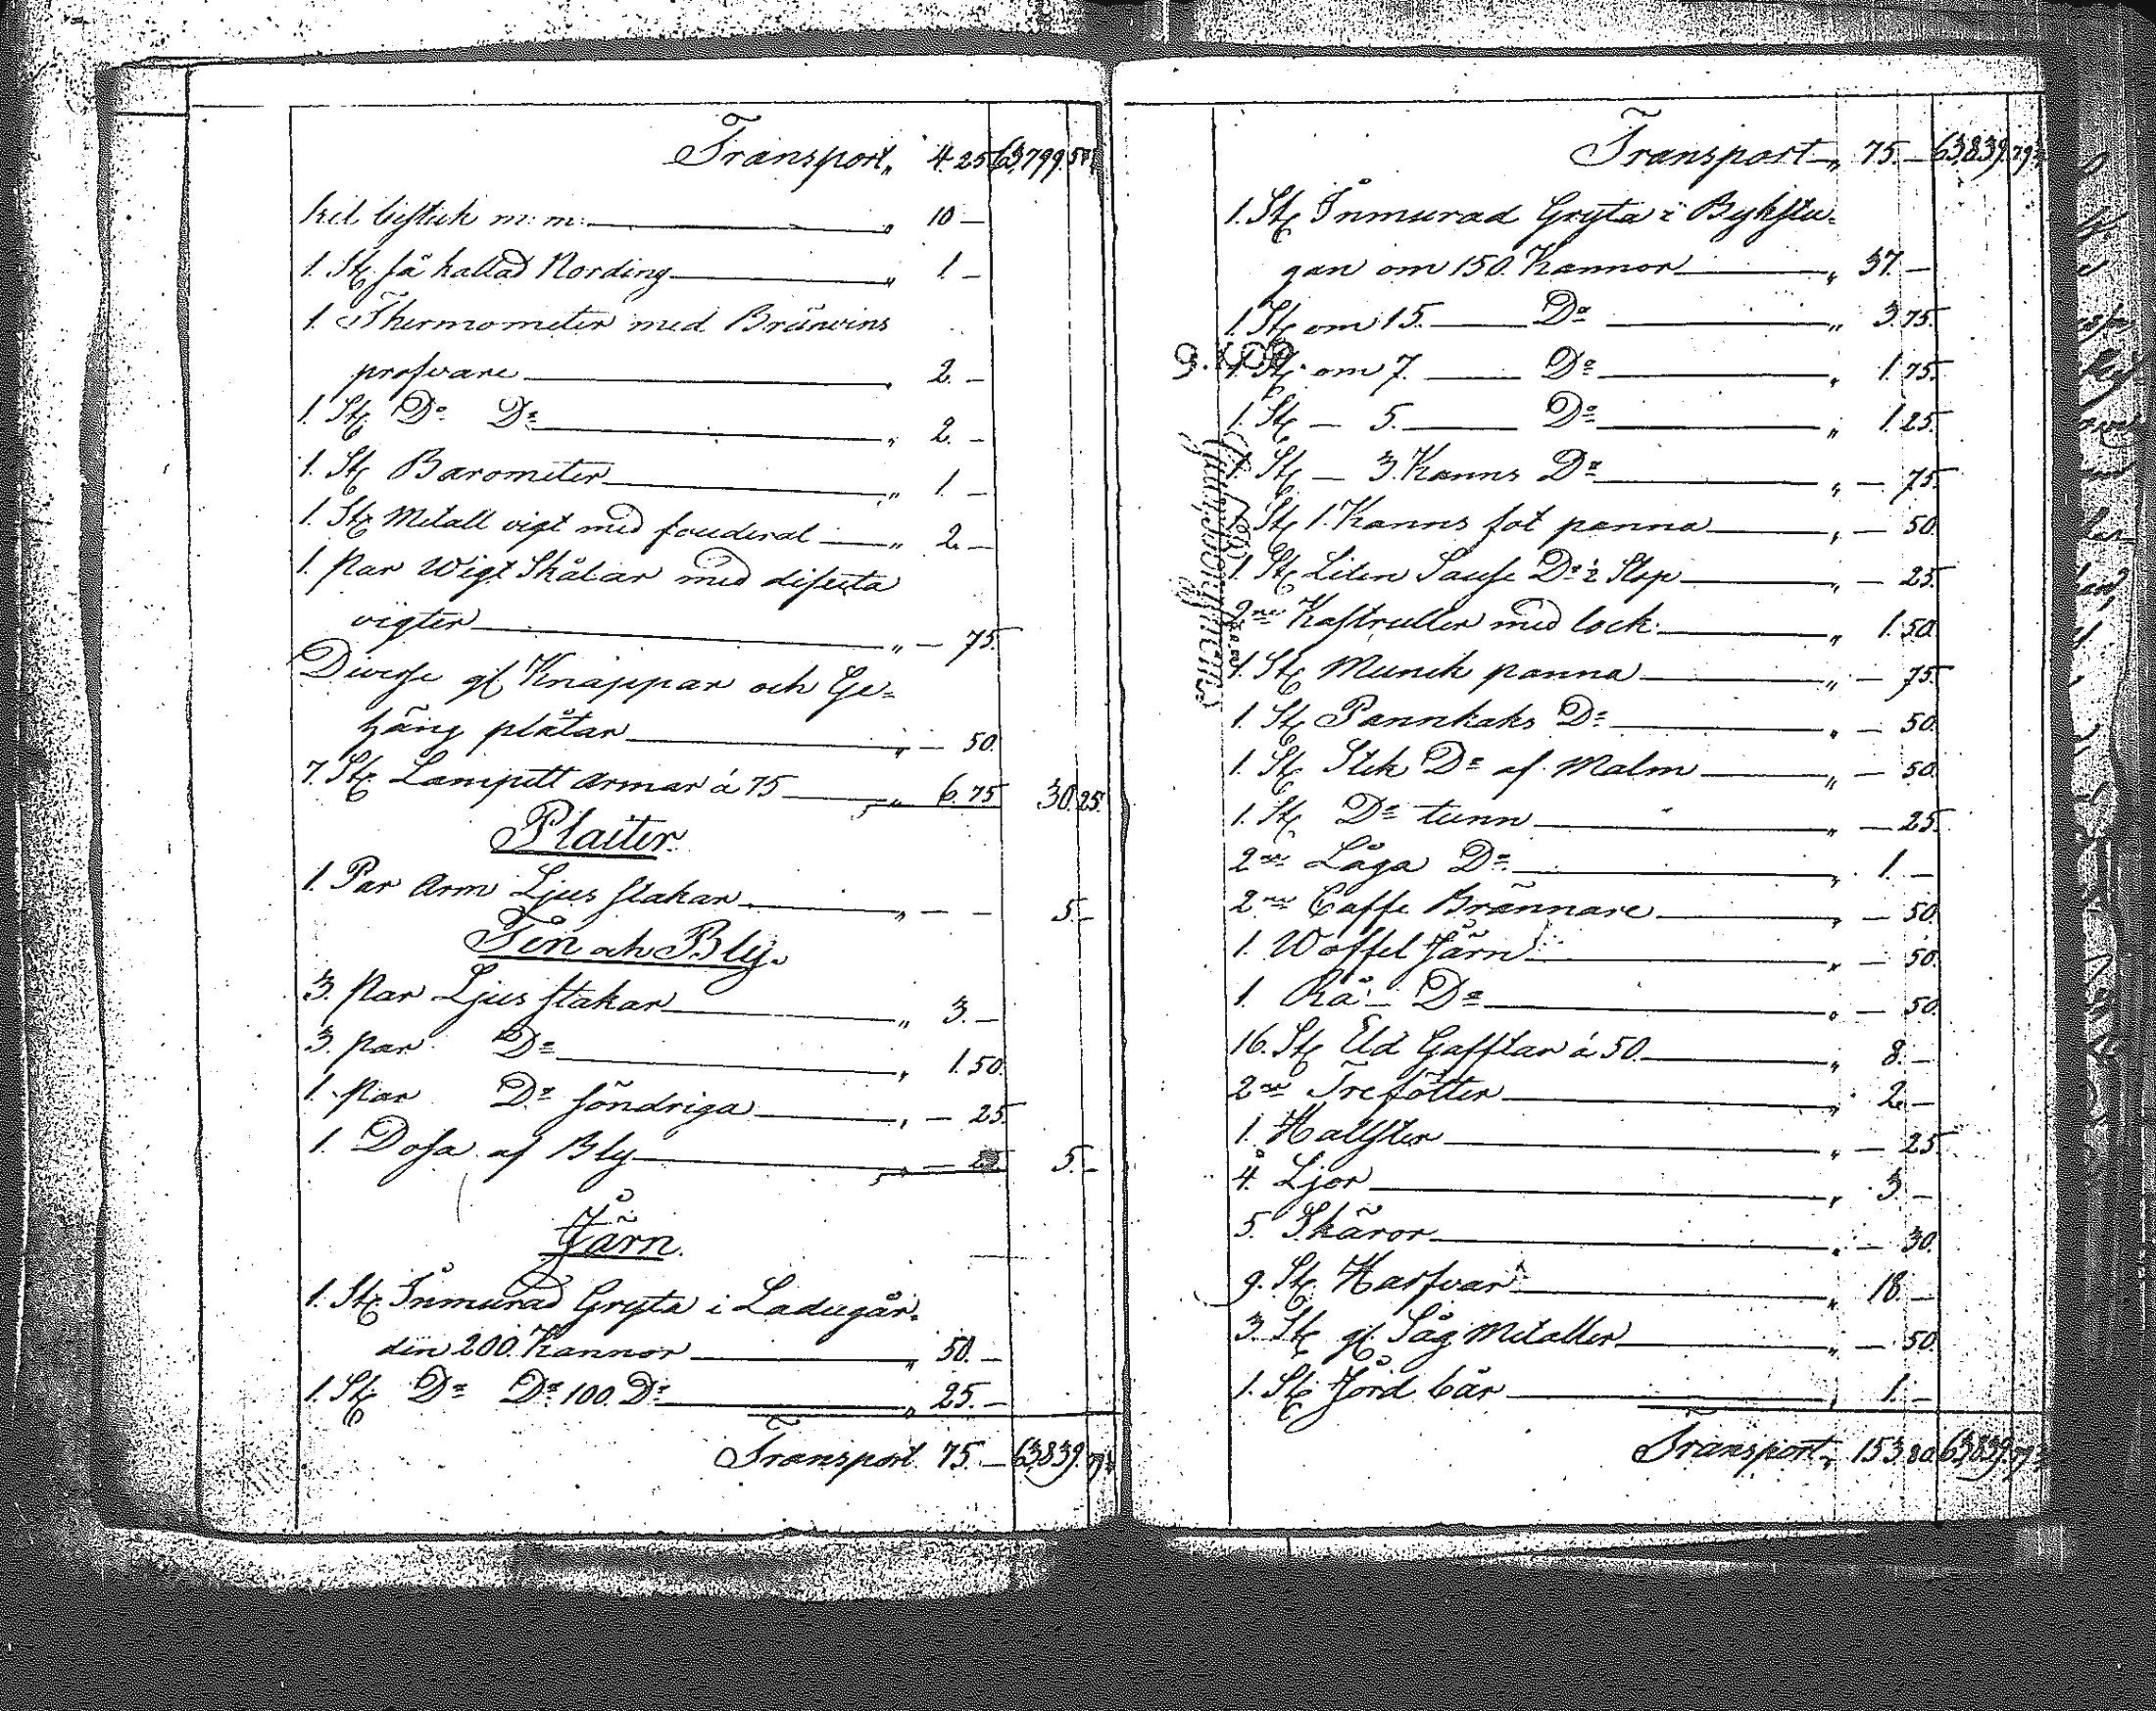 Transport „ 4. 25 63,799. 54
kel bestick m: m: „ 10 —
1. St. så kallad Nording „ 1 —
1. Thermometer med Bränvins
profvare „ 2. —
1. St. Do Do „ 2. —
1. St. Barometer „ 1. —
1. St. Metall vigt med fouderal „ 2. —
1. Par Wigt Skålar med difecta
vigter „ — 75.
Diverse gl Knappar och Ge-
häng plåtar „ — 50.
7. St. Lampett armar á 75 „ 6. 75 30. 25.
Plaiter.
1. Par Arm Ljus stakar „ — — 5. —
Ten och Bly.
3. Par Ljus stakar „ 3. —
3. par Do „ 1. 50.
1. par Do söndriga „ — 25.
1. Dosa af Bly „ — 25 5. —
Järn.
1. St. Inmurad Gryta i Ladugår-
den 200. Kannor „ 50. —
1. St. Do Do 100. Do „ 25. —
Transport 75. — 63,839. 79
Transport „ 75. — 63,839. 79
1. St. Inmurad Gryta i Bykstu-
gan om 150. Kannor „ 37. —
1. St. om 15. Do „ 3. 75.
1. St. om 7. Do „ 1. 75.
1. St. — 5. Do „ 1. 25.
1. St. — 3. Kanns Do „ — 75.
1. St. 1. Kanns fot panna „ — 50.
1. St. Liten Sause Do ½ Stop „ — 25.
2ne Kastruller med lock „ 1. 50.
1. St. Munck panna „ — 75.
1. St. Pannkaks Do „ — 50.
1. St. Stek Do af Malm „ — 50.
1. St. Do tunn „ — 25.
2ne Låga Do „ 1. —
2ne Caffe Brännare „ — 50.
1. Woffel Järn „ — 50.
1. Rå — Do „ — 50.
16. St. Eld Gafflar á 50. „ 8. —
2ne Trefötter „ 2. —
1. Halster „ — 25.
4. Ljor „ 3. —
5. Skäror „ — 30.
9. St. Harfvar „ 18. —
3. St. gl. Såg Metaller „ — 50.
1. St. Jörd bår „ 1. —
Transport „ 153. 80. 63,839. 79